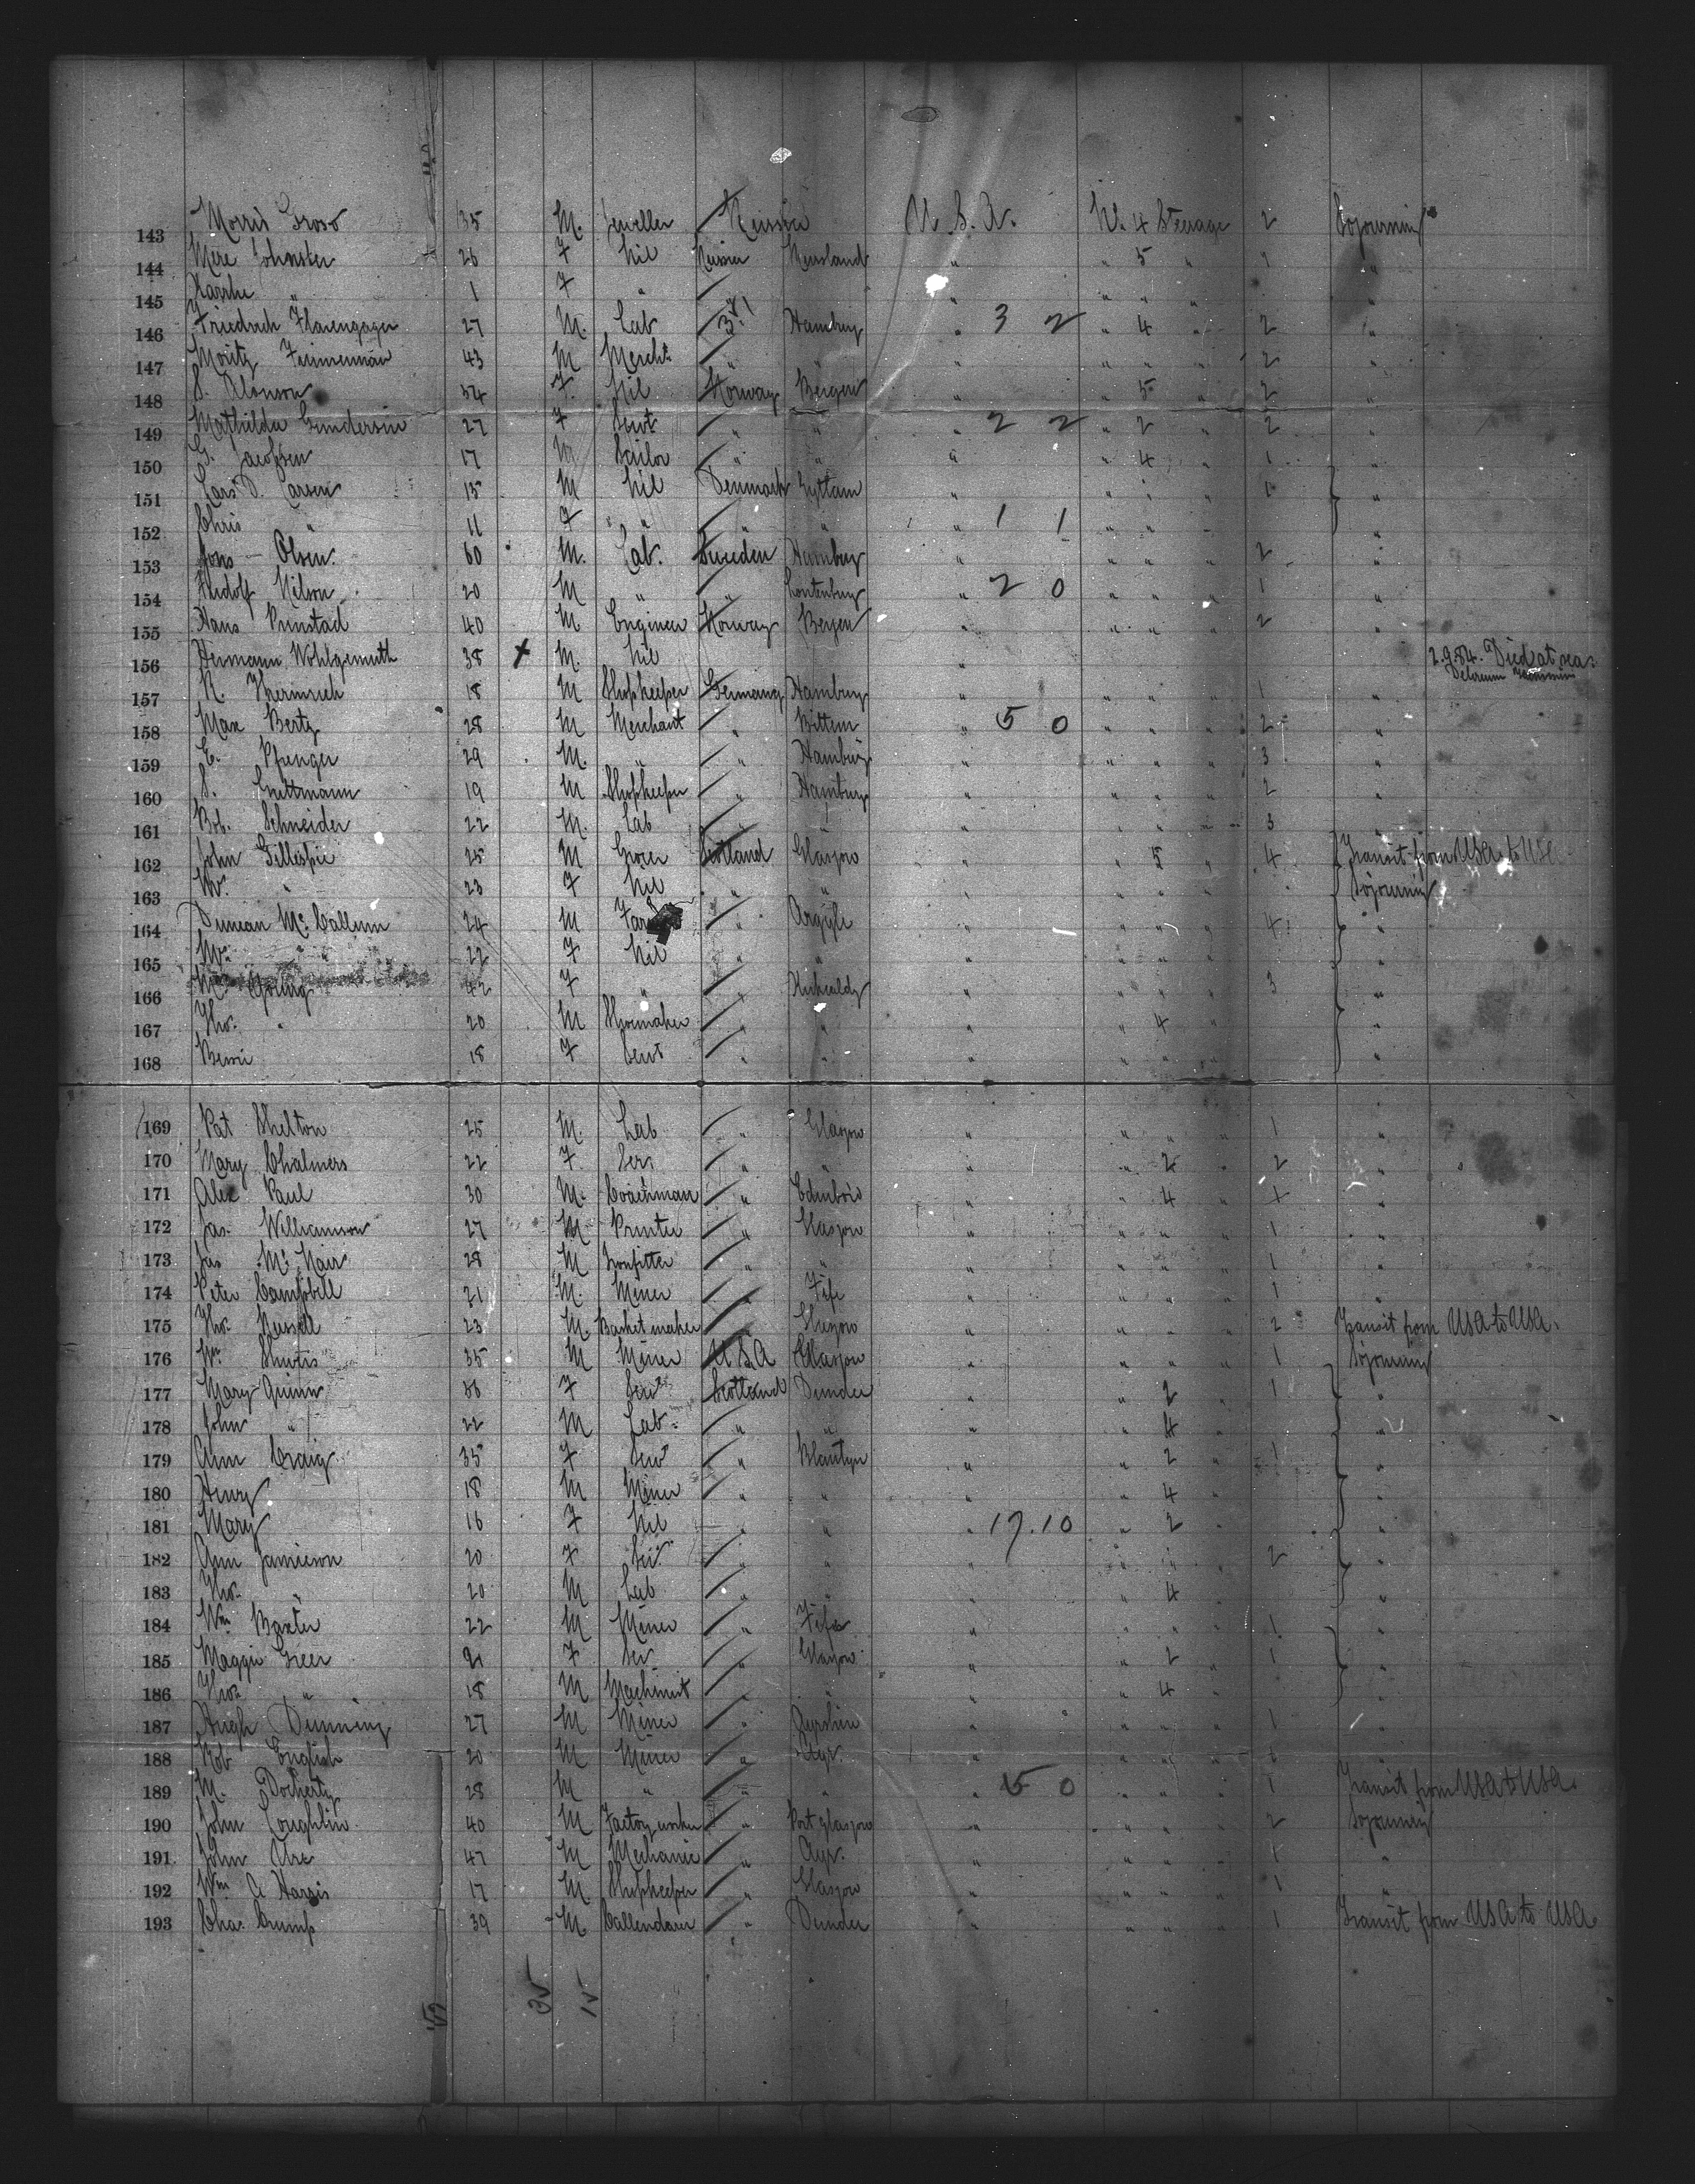 143 Morris Gross 35 M. Jeweller Russia U. S. A. U. 4 Steerage 2 Sojourning
144 26 F Nil Russia Russland " " 5 " 1 "
145 1 F " " " " " " "
146 Friedrich 27 M. Lab Hamburg " 3 2 " 4 " 2 "
147 Moritz Zimmerman 43 M Mercht " " " " " " 2 "
148 S. 34 F. Nil Norway Bergen " " 5 " 2 "
149 Mathilda Gundersen 27 F Servt " " " 2 2 " 2 " 2 "
150 G. Jacobsen 17 M Sailor " " " " 4 " 1 "
151 Lars D. Larsen 15 M Nil Denmark " " " 1 "
152 Chris " 11 F " " " " 1 1 " " "
153 Jons Olsen 60 M. Lab. Sweden Hamburg " " " " 2 "
154 Rudolf Nilson 20 M " " " 2 0 " " " 1 "
155 Hans 40 M Engineer Norway Bergen " " " " 2 "
156 Hermann Wohlgemuth 38 + M. Nil " 2.9.84. Died at sea. Delirium
157 18 M Shopkeeper Germany Hamburg " " " " 1 "
158 Max Bertz 28 M Merchant " " 5 0 " " " 2 "
159 E. 29 M. " " Hamburg " " " " 3 "
160 S. 19 M Shopkeeper " Hamburg " " " " 2 "
161 Rob. Schneider 22 M. Lab " " " " " " 3 "
162 John Gillespie 25 M Grocer Scotland Glasgow " " 5 " 4 Transit from USA to USA
163 " 23 F Nil " " " " " " Sojourning
164 Duncan McCallum 24 M " Argyle " " " " 4 "
165 " 22 F Nil " " " " " " "
166 Young 42 F " " Kirkcaldy " " " " 3 "
167 Thos. " 20 M Shoemaker " " " " 4 " "
168 Bessie 18 F Servt " " " " " " "
169 Pat Shelton 25 M. Lab " Glasgow " " " " 1 "
170 Mary Chalmers 22 F. Ser. " " " " 2 " 2 "
171 Alex Paul 30 M. Coachman " Edinboro " " 4 " "
172 Jas. Williamson 27 M Printer " Glasgow " " " " 1 "
173 Jas McNair 28 M Ironfitter " " " " " " 1 "
174 Peter Campbell 21 M. Miner " Fife " " " " 1 "
175 Thos. Russell 23 M. Basket maker " Glasgow " " " " 2 Transit from USA to USA.
176 Wm 35 M Miner USA Glasgow " " " " 1 Sojourning
177 Mary Quinn F Serv Scotland Dundee " " 2 " 1 "
178 John " 22 M Lab. " " " " 4 " "
179 Ann Craig 35 F Serv " Blantyre " " 2 " 1 "
180 Henry 18 M Miner " " " " 4 " "
181 Mary 16 F Nil " " " 17.10 " 2 " "
182 Ann Jamieson 20 F Ser. " " " " " " 2 "
183 Thos. " 20 M Lab " " " " 4 " "
184 Wm. Baxter 22 M Miner " Fife " " " " 1 "
185 Maggie Greer 21 F Ser " Glasgow " " 2 " 1 "
186 Thos. " 18 M Machinist " " " " 4 " "
187 Hugh Dunning 27 M Miner " Ayrshire " " " " 1 "
188 Rob English 20 M Miner " Ayr. " " " " 1 "
189 M. Docherty 28 M " " " 5 0 " " " 1 Transit from USA to USA.
190 John Coughlin 40 M Factory worker " Port glasgow " " " " 2 Sojourning
191 John Ure 47 M Mechanic " Ayr. " " " " 1 "
192 Wm A Harris 17 M. Shopkeeper " Glasgow " " " " 1 "
193 Chas. Crump 39 M. Callendarer " Dundee " " " " 1 Transit from USA to USA.